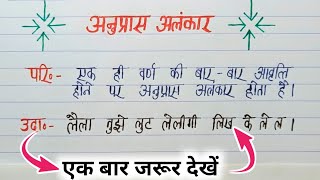 अनुप्रास अलंकार
परि०- एक ही वर्ण की बार-बार आवृत्ति
होने पर अनुप्रास अलंकार होता है।
उदा०- लैला तुझे लुट लेलीगी लिख के ले ले।
एक बार जरूर देखें